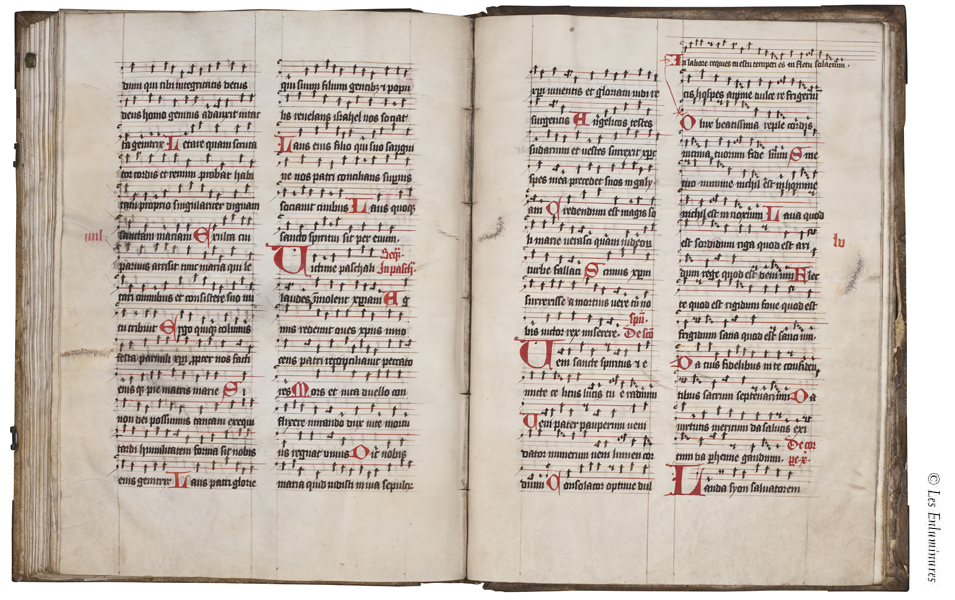 deus homo genitus adiauxit intac
ta genitrix Letare quam scruta
tor cordis et renum probat habi
taculo proprio singulariter dignam
sanctam mariam Exulta cui
paruus arrisit tunc maria qui le
tari omnibus et consistere suo nu
tu tribuit Ergo quique colimus
festa parituali xpi propter nos facti
eius que pie matris marie Si
non dei possumus tantam exequi
tardi humilitatem forma sit nobis
eius genitrix Laus patri glorie
qui suum filium gentibus et popu
lis reuelans israhel nos sociat
Laus eius filio qui suo sangui
ne nos patri concilians supernis
sociauit ciuibus Laus quoque
sancto spiritui sit per euum.
Uictime paschali
laudes immolent xpiani Ag
nus redemit oues xpus inno
cens patri reconciliauit peccato
res Mors et uita duello con
flixere mirando dux uite mortu
us regnat uiuus Dic nobis
maria quid uidisti in uia sepulcr
xpi uiuentis et gloriam uidi re
surgentis Angelicos testes
sudarium et uestes surrexit xpc
spes mea precedet suos in galy
am Credendum est magis so
li marie veraci quam iudeor
turbe fallaci Scimus xpm
surrexisse a mortuis uere tu no
bis uictor rex miserere. De sco
spu.
Ueni sancte spiritus et e
mitte celitus lucis tue radium
Ueni pater pauperum ueni
dator munerum ueni lumen cor
dium Consolator optime dul
In labore requies in estu temperies in fletu solacium.
cis hospes anime dulce refrigeriu
O lux beatissima reple cordis
intima tuorum fidelium Sine
tuo numine nichil est in homine
nichil est innoxium Laua quod
est sordidum riga quod est ari
dum rege quod est deuium Flec
te quod est rigidum foue quod est
frigidum sana quod est sauciu
Da tuis fidelibus in te confiden
tibus sacrum septenarium Da
uirtutis meritum da salutis exi
tum da perhenne gaudium. De cor
pe x.
Lauda syon saluatorem
© Les Enluminures